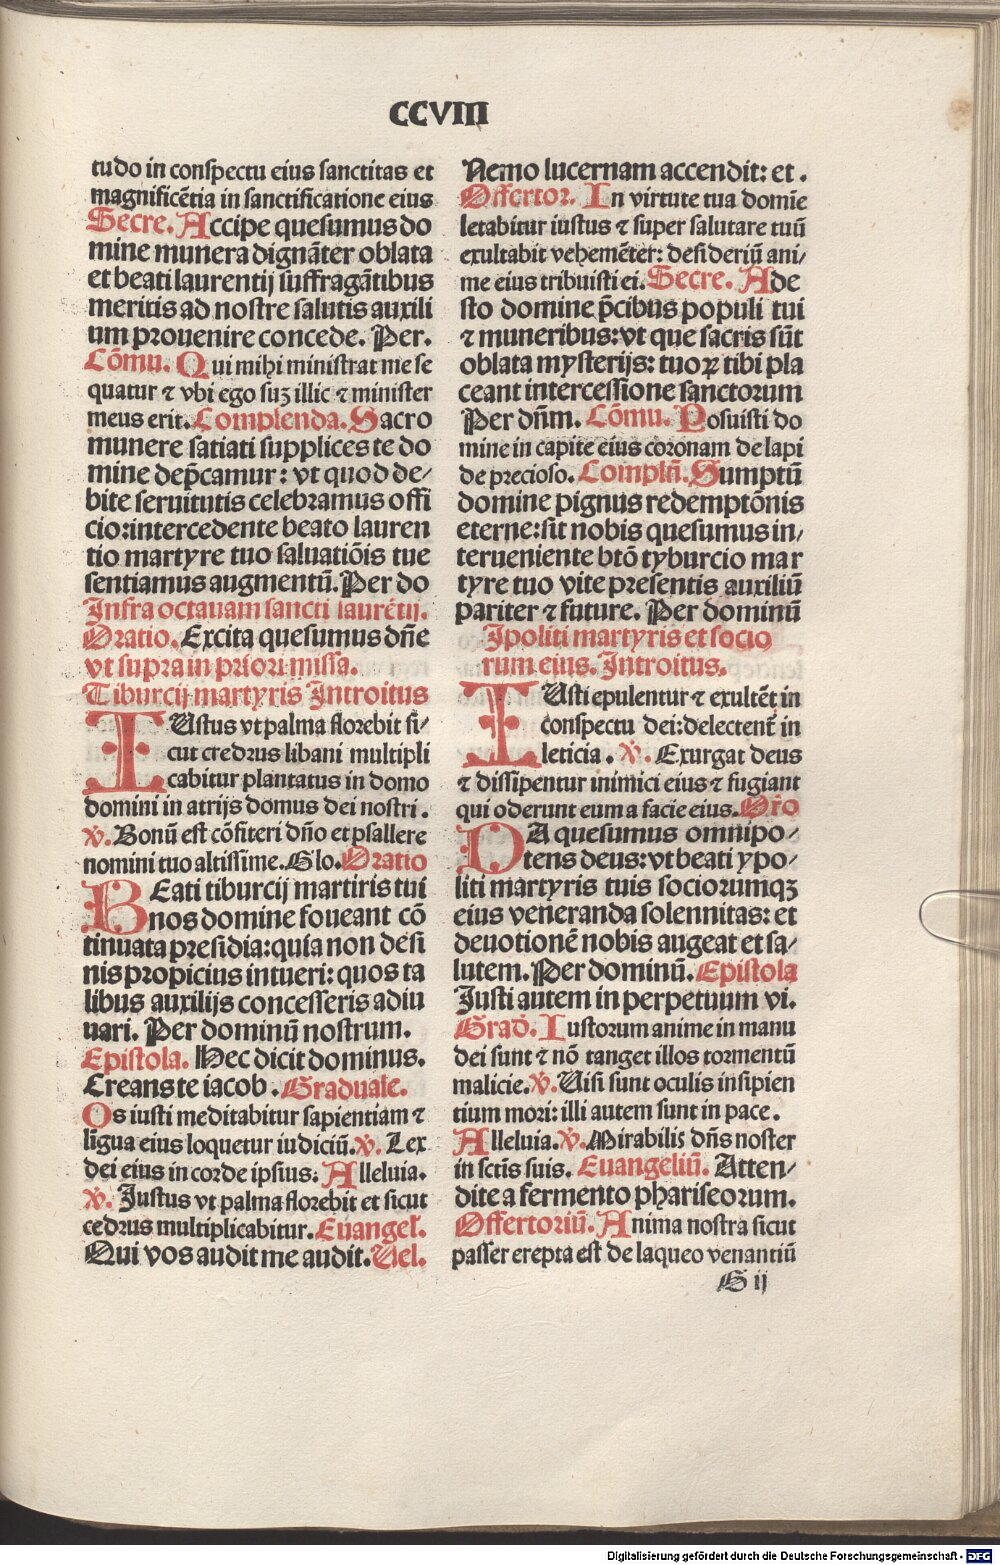 CCVIII
tudo in conspectu eius sanctitas et
magnificētia in sanctificatione eius
Secre. Accipe quesumus do
mine munera dignāter oblata
et beati laurentij suffragātibus
meritis ad nostre salutis auxili
um prouenire concede. Per.
Cōmu. Qui mihi ministrat me se
quatur ⁊ vbi ego suꝫ illic ⁊ minister
meus erit. Complenda. Sacro
munere satiati supplices te do
mine dep̄camur: vt quod de/
bite seruitutis celebramus offi
cio: intercedente beato lauren
tio martyre tuo saluatiōis tue
sentiamus augmentū. Per do
Infra octauam sancti laurētij.
Oratio. Excita quesumus dn̄e
vt supra in priori missa.
Tiburcij martyris Introitus
IUstus vt palma florebit si/
cut cedrus libani multipli
cabitur plantatus in domo
domini in atrijs domus dei nostri.
℣. Bonū est cōfiteri dn̄o et psallere
nomini tuo altissime. Glo. Oratio
BEati tiburcij martiris tui
nos domine foueant cō
tinuata presidia: quia non desi
nis propicius intueri: quos ta
libus auxilijs concesseris adiu
uari. Per dominū nostrum.
Epistola. Hec dicit dominus.
Creans te iacob. Graduale.
Os iusti meditabitur sapientiam ⁊
līgua eius loquetur iudiciū. ℣. Lex
dei eius in corde ipsius: Alleluia.
℣. Justus vt palma florebit et sicut
cedrus multiplicabitur. Euangel.
Qui vos audit me audit. Uel.
Nemo lucernam accendit: et.
Offertor. In virtute tua domīe
letabitur iustus ⁊ super salutare tuū
exultabit vehemēter: desideriū ani/
me eius tribuisti ei. Secre. Ade
sto domine p̄cibus populi tui
⁊ muneribus: vt que sacris sūt
oblata mysterijs: tuoꝝ tibi pla
ceant intercessione sanctorum
Per dn̄m. Cōmu. Posuisti do
mine in capite eius coronam de lapi
de precioso. Compln̄. Sumptū
domine pignus redemptōnis
eterne: sit nobis quesumus in/
terueniente btō tyburcio mar
tyre tuo vite presentis auxiliū
pariter ⁊ future. Per dominū
Ipoliti martyris et socio
rum eius. Introitus.
IUsti epulentur ⁊ exultēt in
conspectu dei: delectent̄ in
leticia. ℣. Exurgat deus
⁊ dissipentur inimici eius ⁊ fugiant
qui oderunt eum a facie eius. Or̄o
DA quesumus omnipo/
tens deus: vt beati ypo/
liti martyris tuis sociorumqꝫ
eius veneranda solennitas: et
deuotionē nobis augeat et sa/
lutem. Per dominū. Epistola
Justi autem in perpetuum vi.
Grad̄. Iustorum anime in manu
dei sunt ⁊ nō tanget illos tormentū
malicie. ℣. Uisi sunt oculis insipien
tium mori: illi autem sunt in pace.
Alleluia. ℣. Mirabilis dn̄s noster
in sctīs suis. Euangeliū. Atten/
dite a fermento phariseorum.
Offertoriū. Anima nostra sicut
passer erepta est de laqueo venantiū
G ij
Digitalisierung gefördert durch die Deutsche Forschungsgemeinschaft - DFG